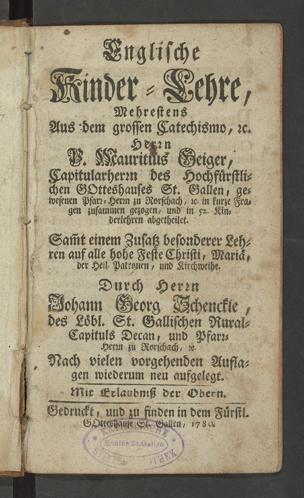 Englische
Kinder-Lehre,
Mehrestens
Aus dem grossen Catechismo, ꝛc.
Herrn
P. Mauritius Geiger,
Capitularherrn des Hochfürstli-
chen GOtteshauses St. Gallen, ge-
wesenen Pfarr-Herrn zu Rorschach, ꝛc. in kurze Fra-
gen zusammen gezogen, und in 52. Kin-
derlehren abgetheilet.
Sam̃t einem Zusatz besonderer Leh-
ren auf alle hohe Feste Christi, Mariä,
der Heil. Patronen, und Kirchweihe.
Durch Herrn
Johann Georg Schenckle,
des Löbl. St. Gallischen Rural-
Capituls Decan, und Pfarr-
Herrn zu Rorschach, ꝛc.
Nach vielen vorgehenden Aufla-
gen wiederum neu aufgelegt.
Mit Erlaubniß der Obern.
Gedruckt, und zu finden in dem Fürstl.
GOtteshause St. Gallen, 1780.